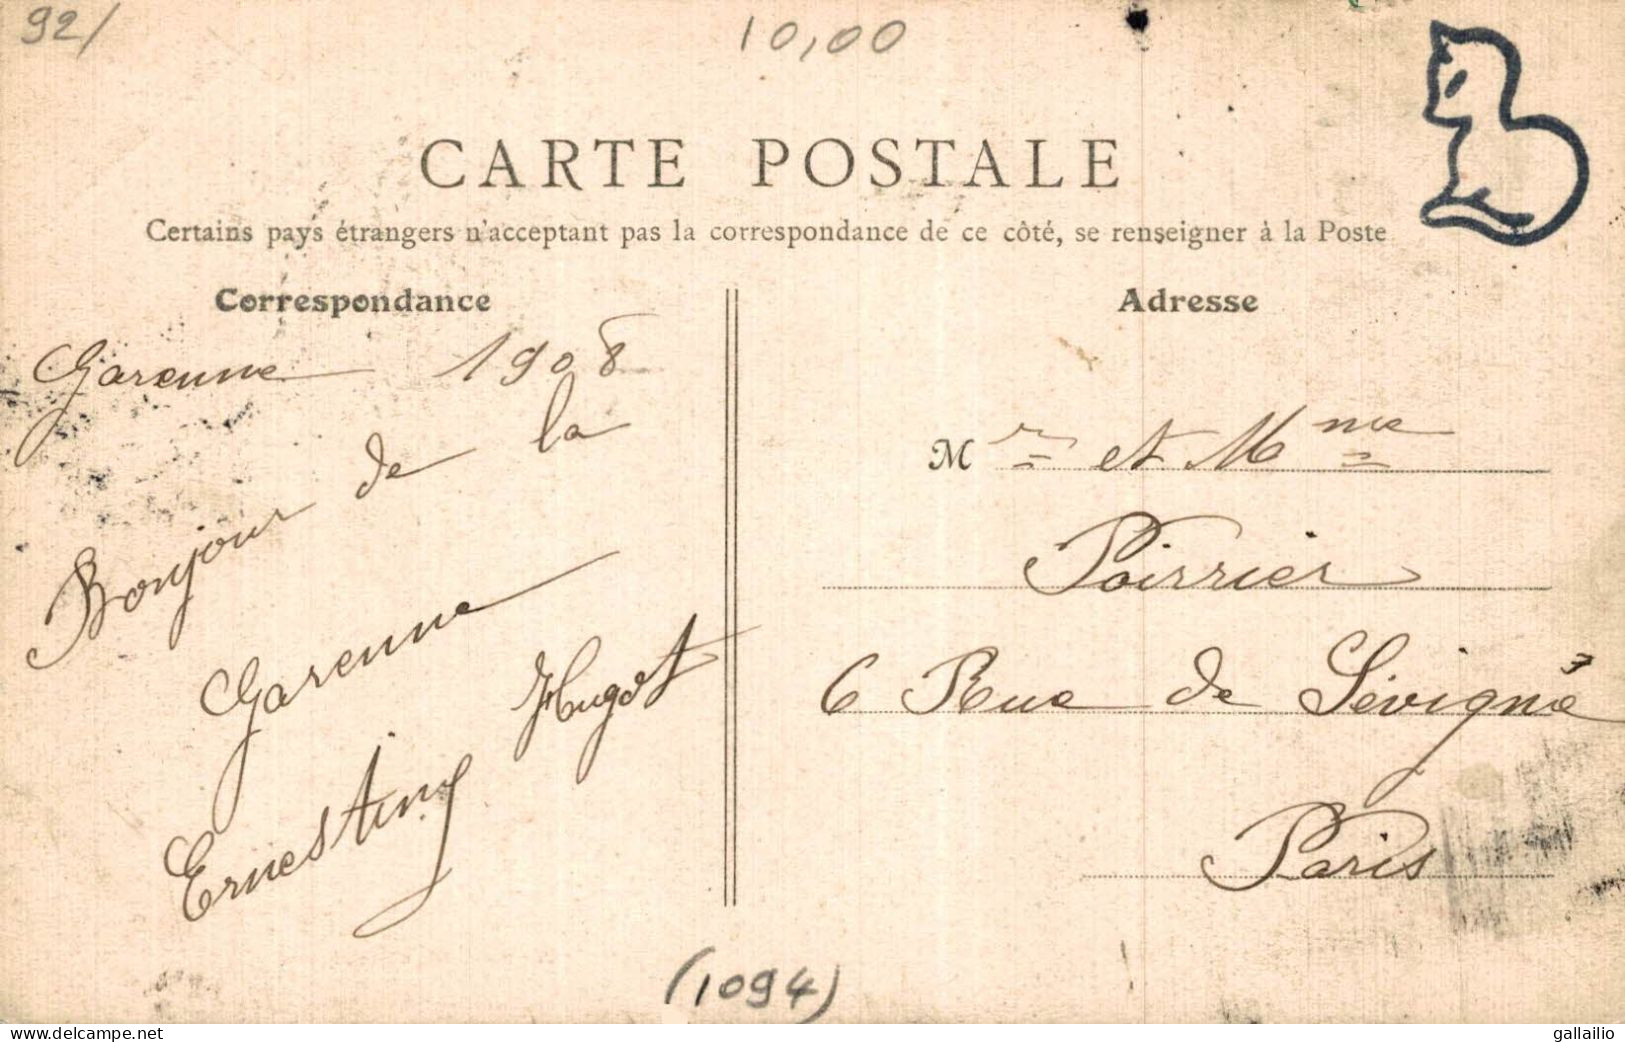 92/
10,00
CARTE POSTALE
Certains pays étrangers n'acceptant pas la correspondance de ce côté, se renseigner à la Poste
Correspondance
Garenne 1908
Bonjour de la
Garenne
Ernestiny Hugot
Adresse
M r et Mme
Poirrier
6 Rue de Sévigné
Paris
(1094)
www.delcampe.net
gallailio